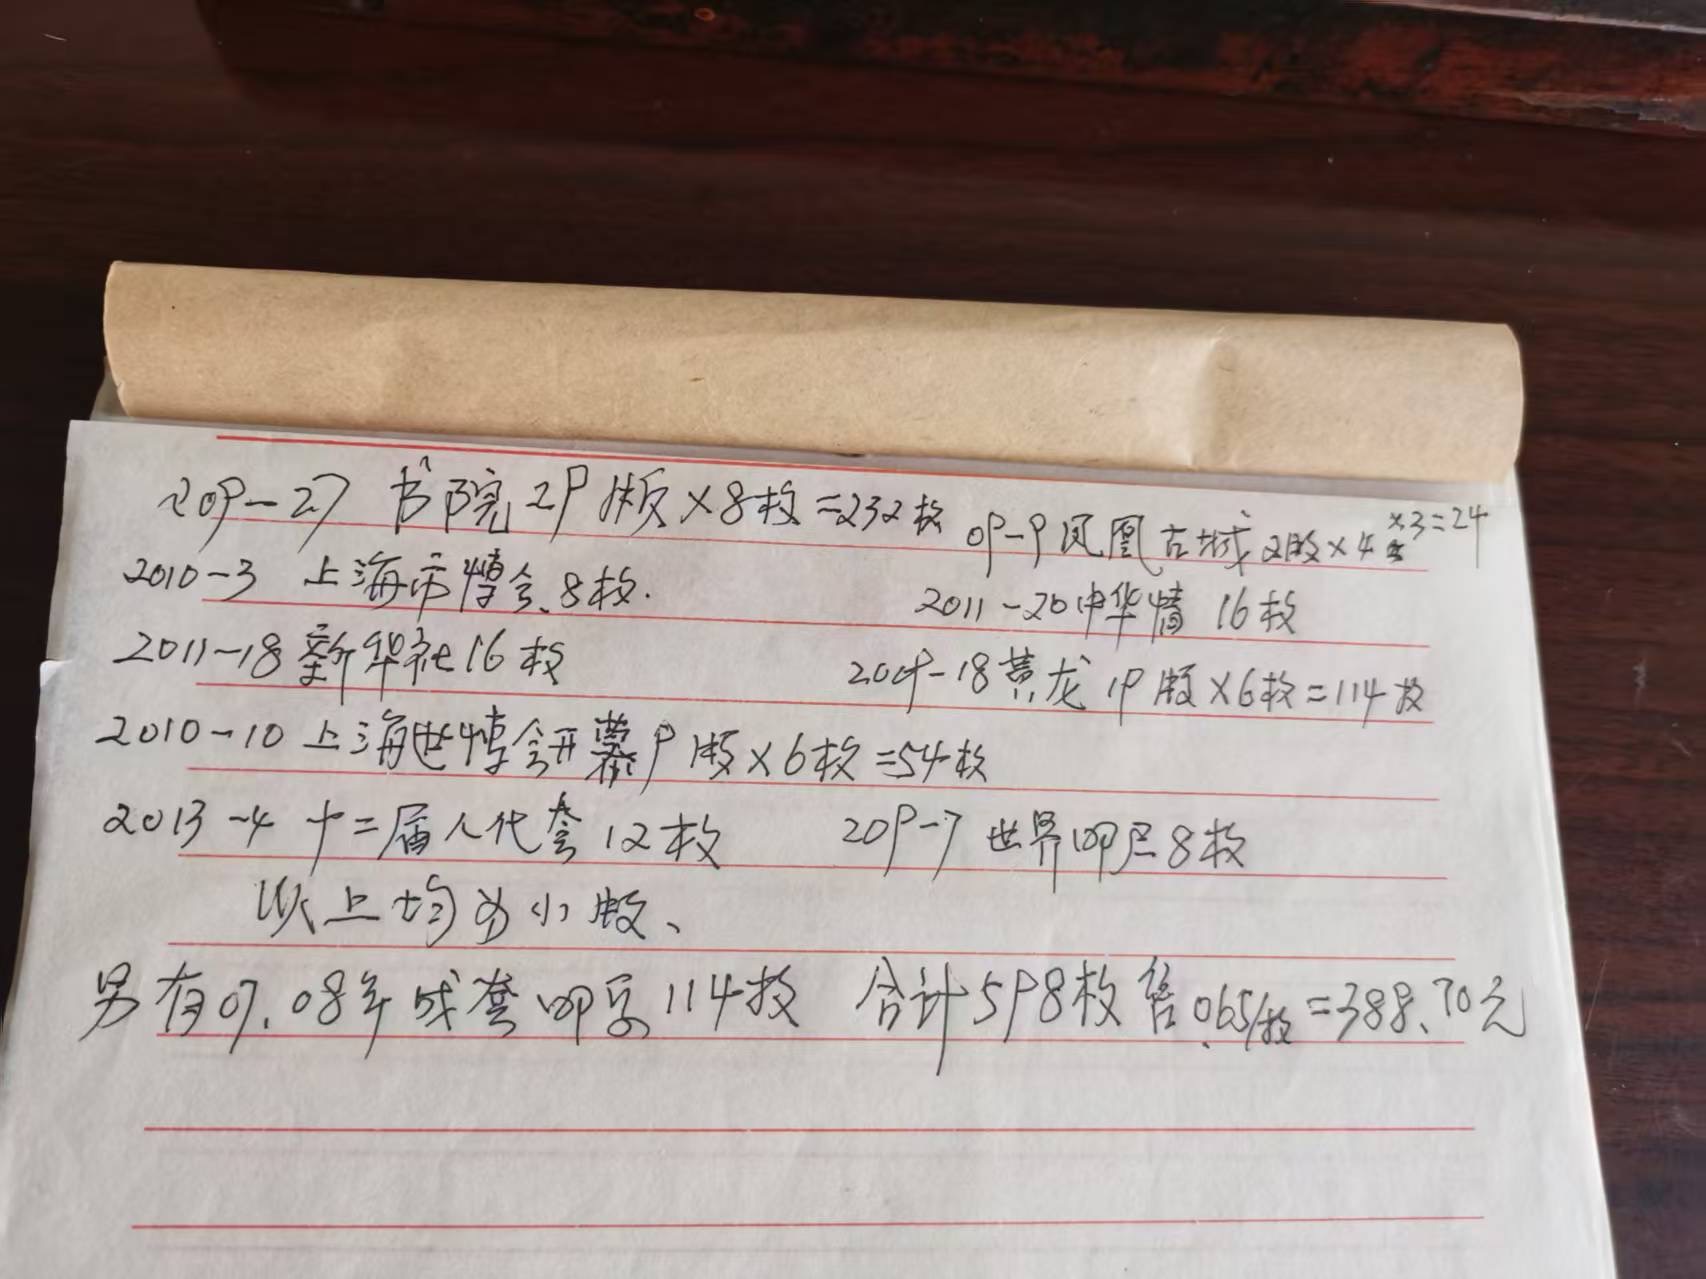 2009-27 书院 29版×8枚=232枚 09-9凤凰古城2版×4套×3=24
2010-3 上海市博会、8枚. 2011-20中华情 16枚
2011-18新华社16枚 2009-18黄龙 19版×6枚=114枚
2010-10上海世博会开幕9版×6枚=54枚
2013-4 十二届人代套12枚 209-7 世界 8枚
以上均为小版、
另有07.08年成套 114枚 合计598枚 售0.65/枚=388.70元